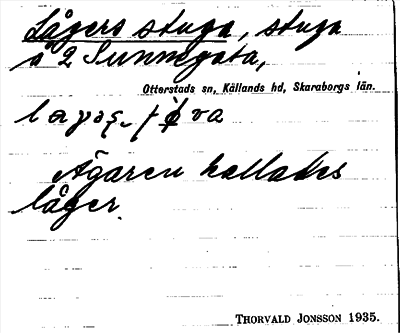 Lågers stuga, stuga
å 2 Sunnegata,
Otterstads sn, Kållands hd, Skaraborgs län.
Ägaren kallades
låger.
THORVALD JONSSON 1935.